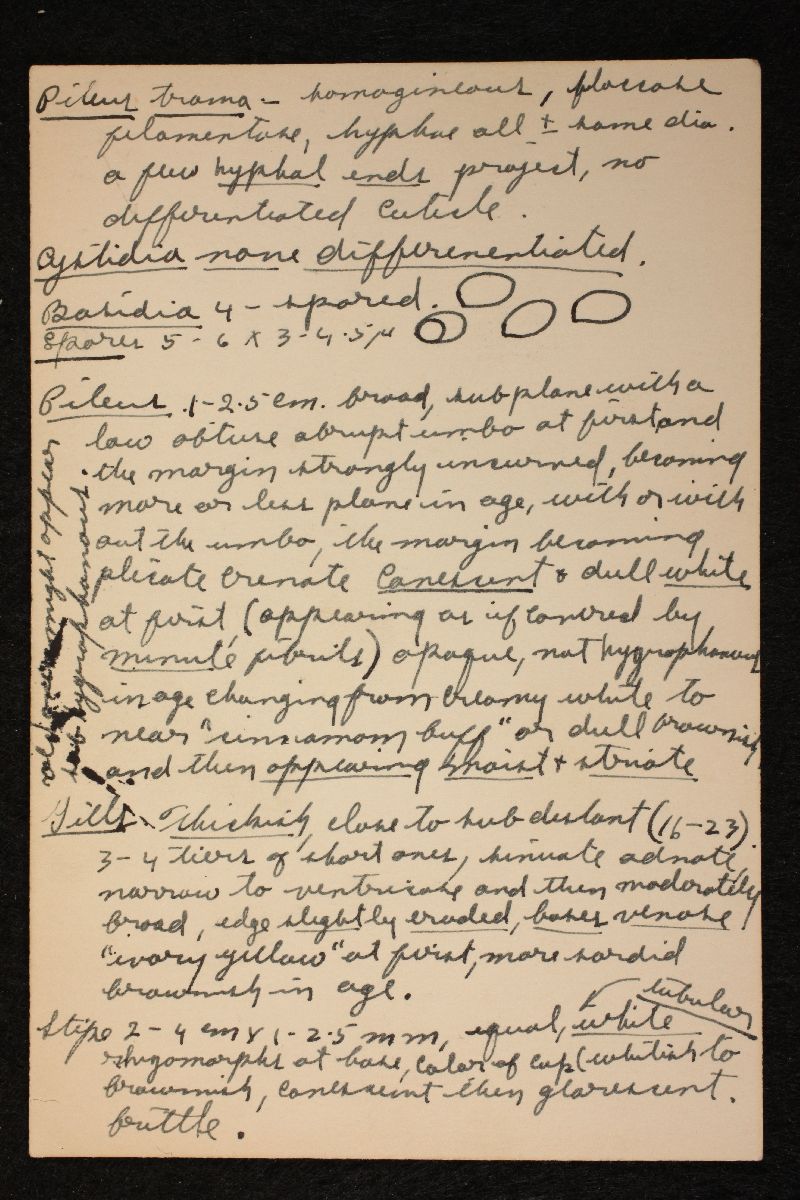 Pileus trama – homogineous, floccose
filamentose, hyphae all ± same dia.
a few hyphal ends project, no
differentiated cuticle.
Cystidia none differenentiated.
Basidia 4 - spored.
Spores 5 - 6 x 3 - 4.5 µ
Pileus .1-2.5 cm. broad, subplane with a
low obtuse abrupt umbo at first and
the margin strongly incurved, becoming
more or less plane in age, with or with
out the umbo, the margin becoming
plicate crenate Canescent & dull white
at first, (appearing as if covered by
minute fibrils) opaque, not hygrophanous
in age changing from creamy white to
near "cinnamom buff" or dull brownish
and then appearing moist & striate
might appear
sub hygrophanous.
Gills. Thickish, close to subdistant (16-23).
3-4 tiers of short ones, sinuate adnate,
narrow to ventricose and then moderately
broad, edge slightly eroded, bases venose,
"ivory yellow" at first, more sordid
brownish in age.
tubular
Stipe 2 - 4 cm x 1 - 2.5 mm, equal, white
rhizomorphs at base, color of cap (whitish to
brownish, canescent then glarescent.
brittle.